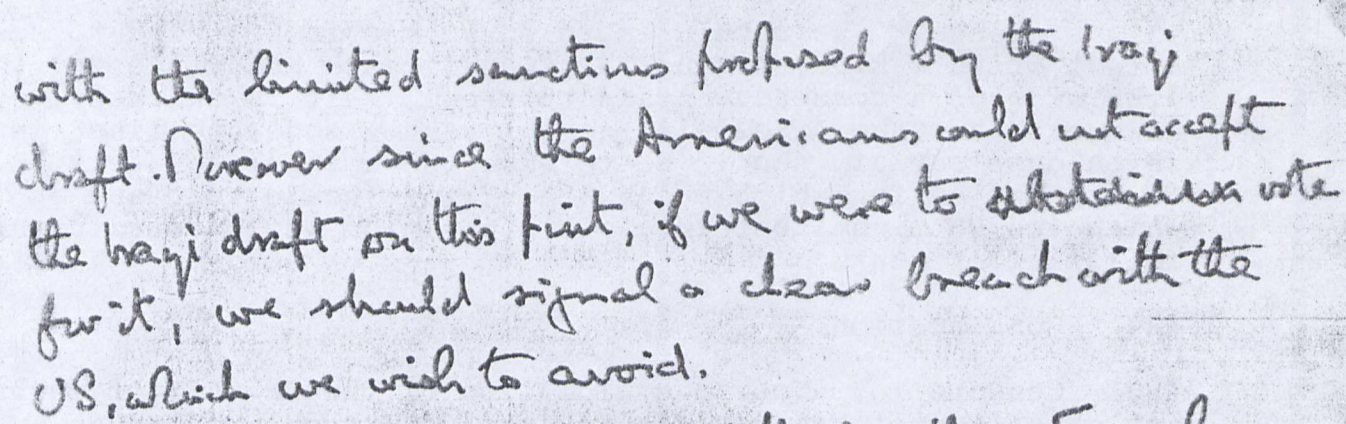 with the limited sanctions proposed by the Iraqi
draft. Moreover since the Americans could not accept
the Iraqi draft on this point, if we were to vote
for it, we should signal a clear breach with the
US, which we wish to avoid.